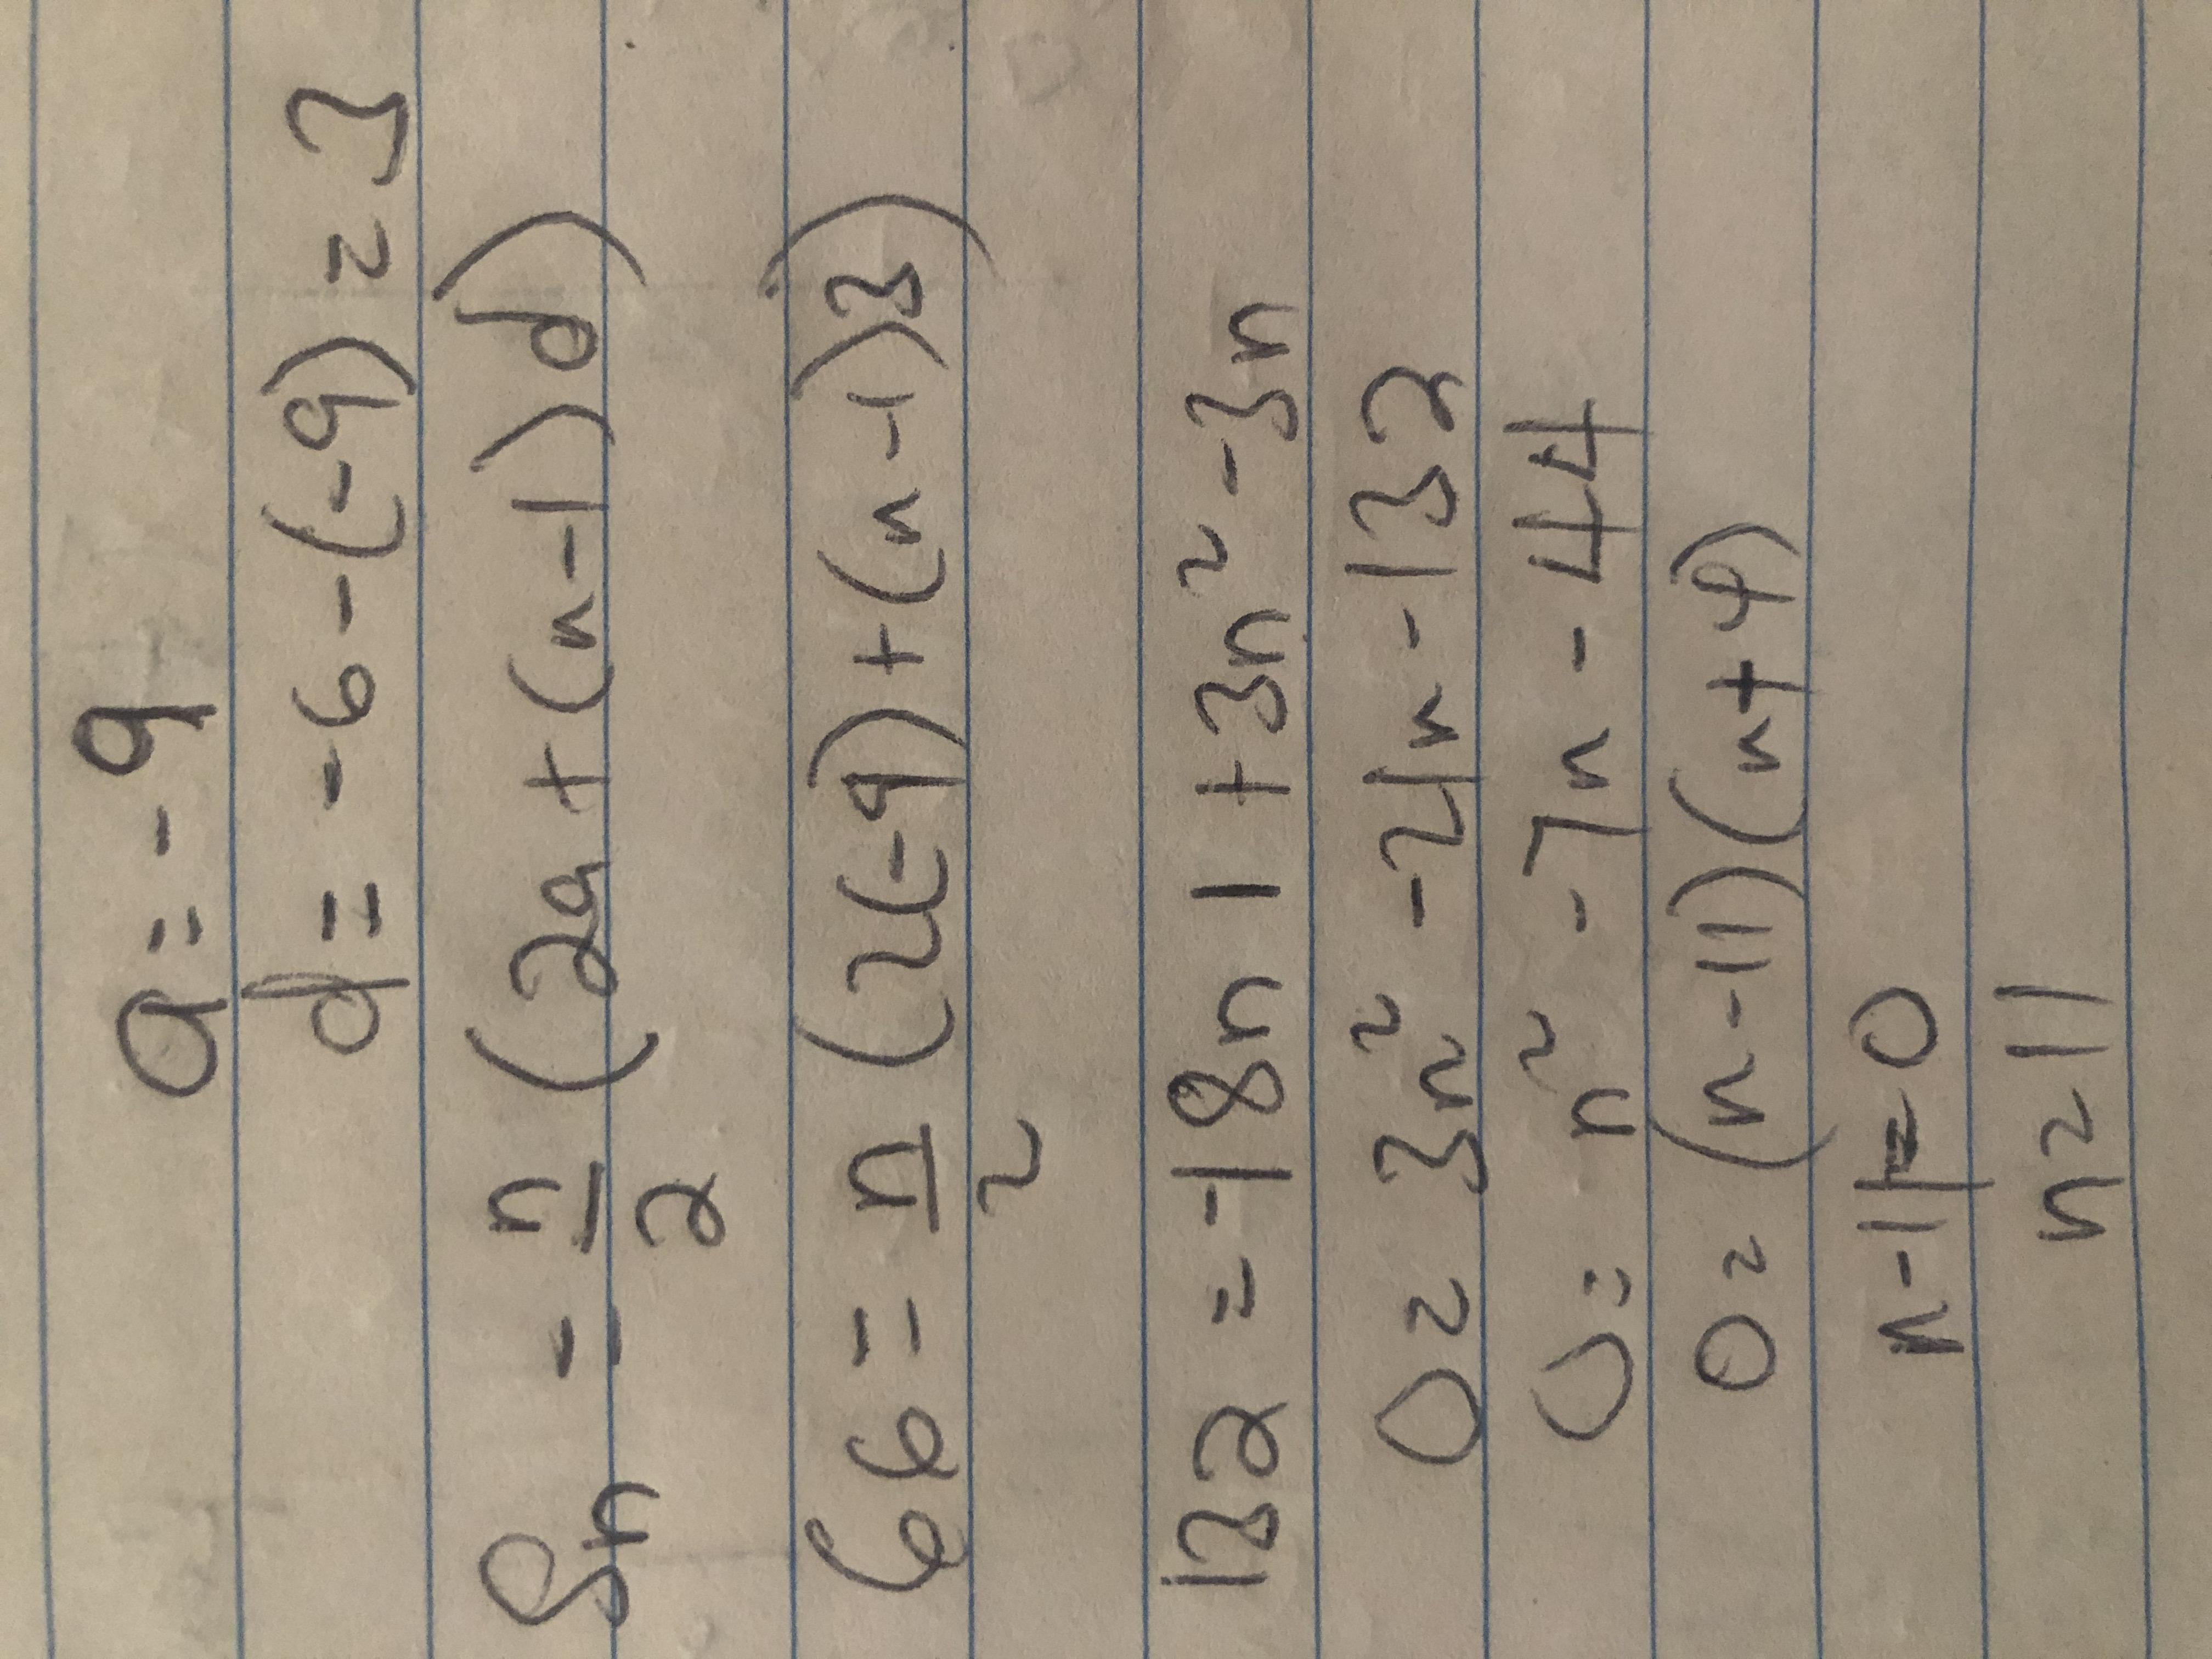 a = -9
d = -6 - (-9) = 3
Sn = n/2 (2a + (n-1)d)
66 = n/2 (2(-9) + (n-1)3)
132 = -18n + 3n² - 3n
0 = 3n² - 21n - 132
0 = n² - 7n - 44
0 = (n-11)(n+4)
n-11=0
n=11